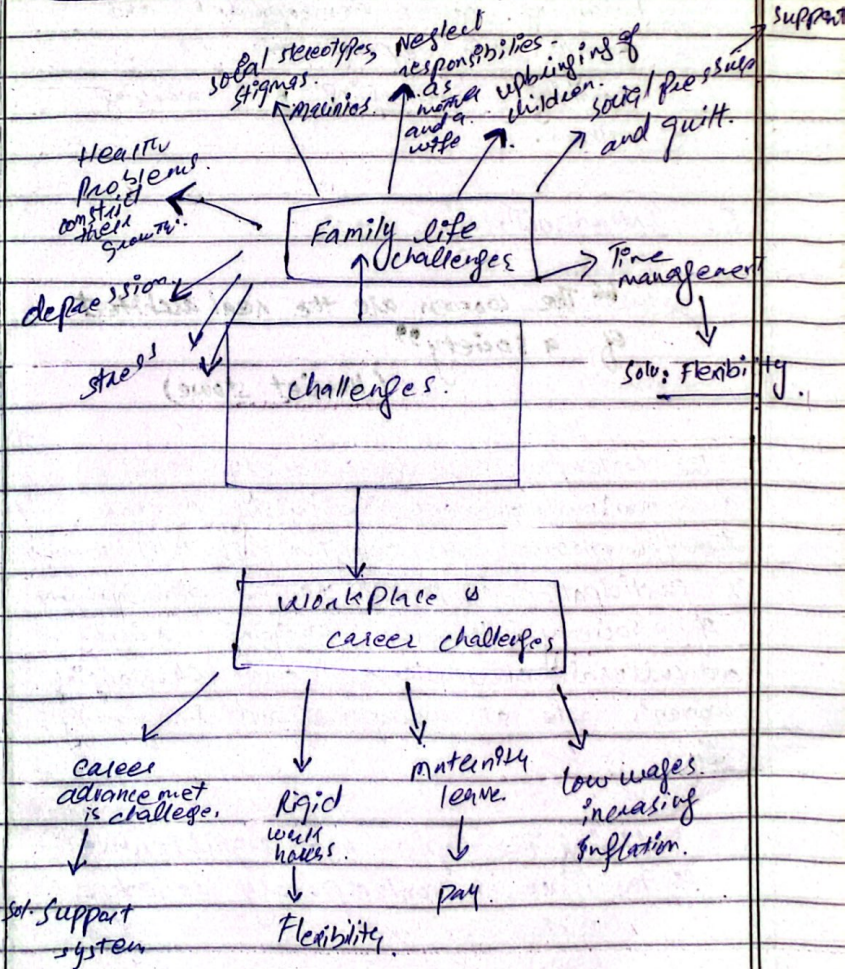 Support
social stereotypes,
stigmas.
Neglect
responsibilies.
as
mother
and a
wife
upbringing of
children.
social pressure
and guilt.
Health
Problems.
their
growth.
Family life
challenges
Time
management
Solu: Flexibility.
depression
stress
challenges.
workplace &
career challenges
career
advancemet
is challege.
Sol. Support
system
Rigid
work
hours.
Flexibility.
Maternity
leave.
pay.
low wages.
increasing
Inflation.